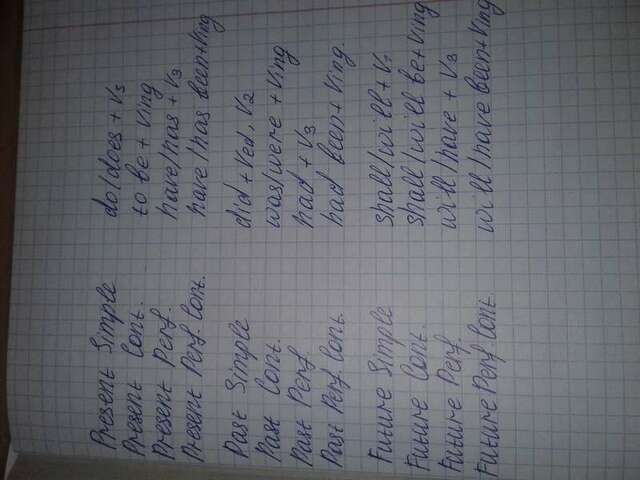 Present Simple do/does + Vs
Present Cont. to be + Ving
Present Perf. have/has + V3
Present Perf. Cont. have/has been+Ving
Past Simple did + Ved, V2
Past Cont. was/were + Ving
Past Perf. had + V3
Past Perf. Cont. had been + Ving.
Future Simple shall/will + V1
Future Cont. shall/will be+Ving
Future Perf. will/have + V3
Future Perf. Cont will/have been+Ving